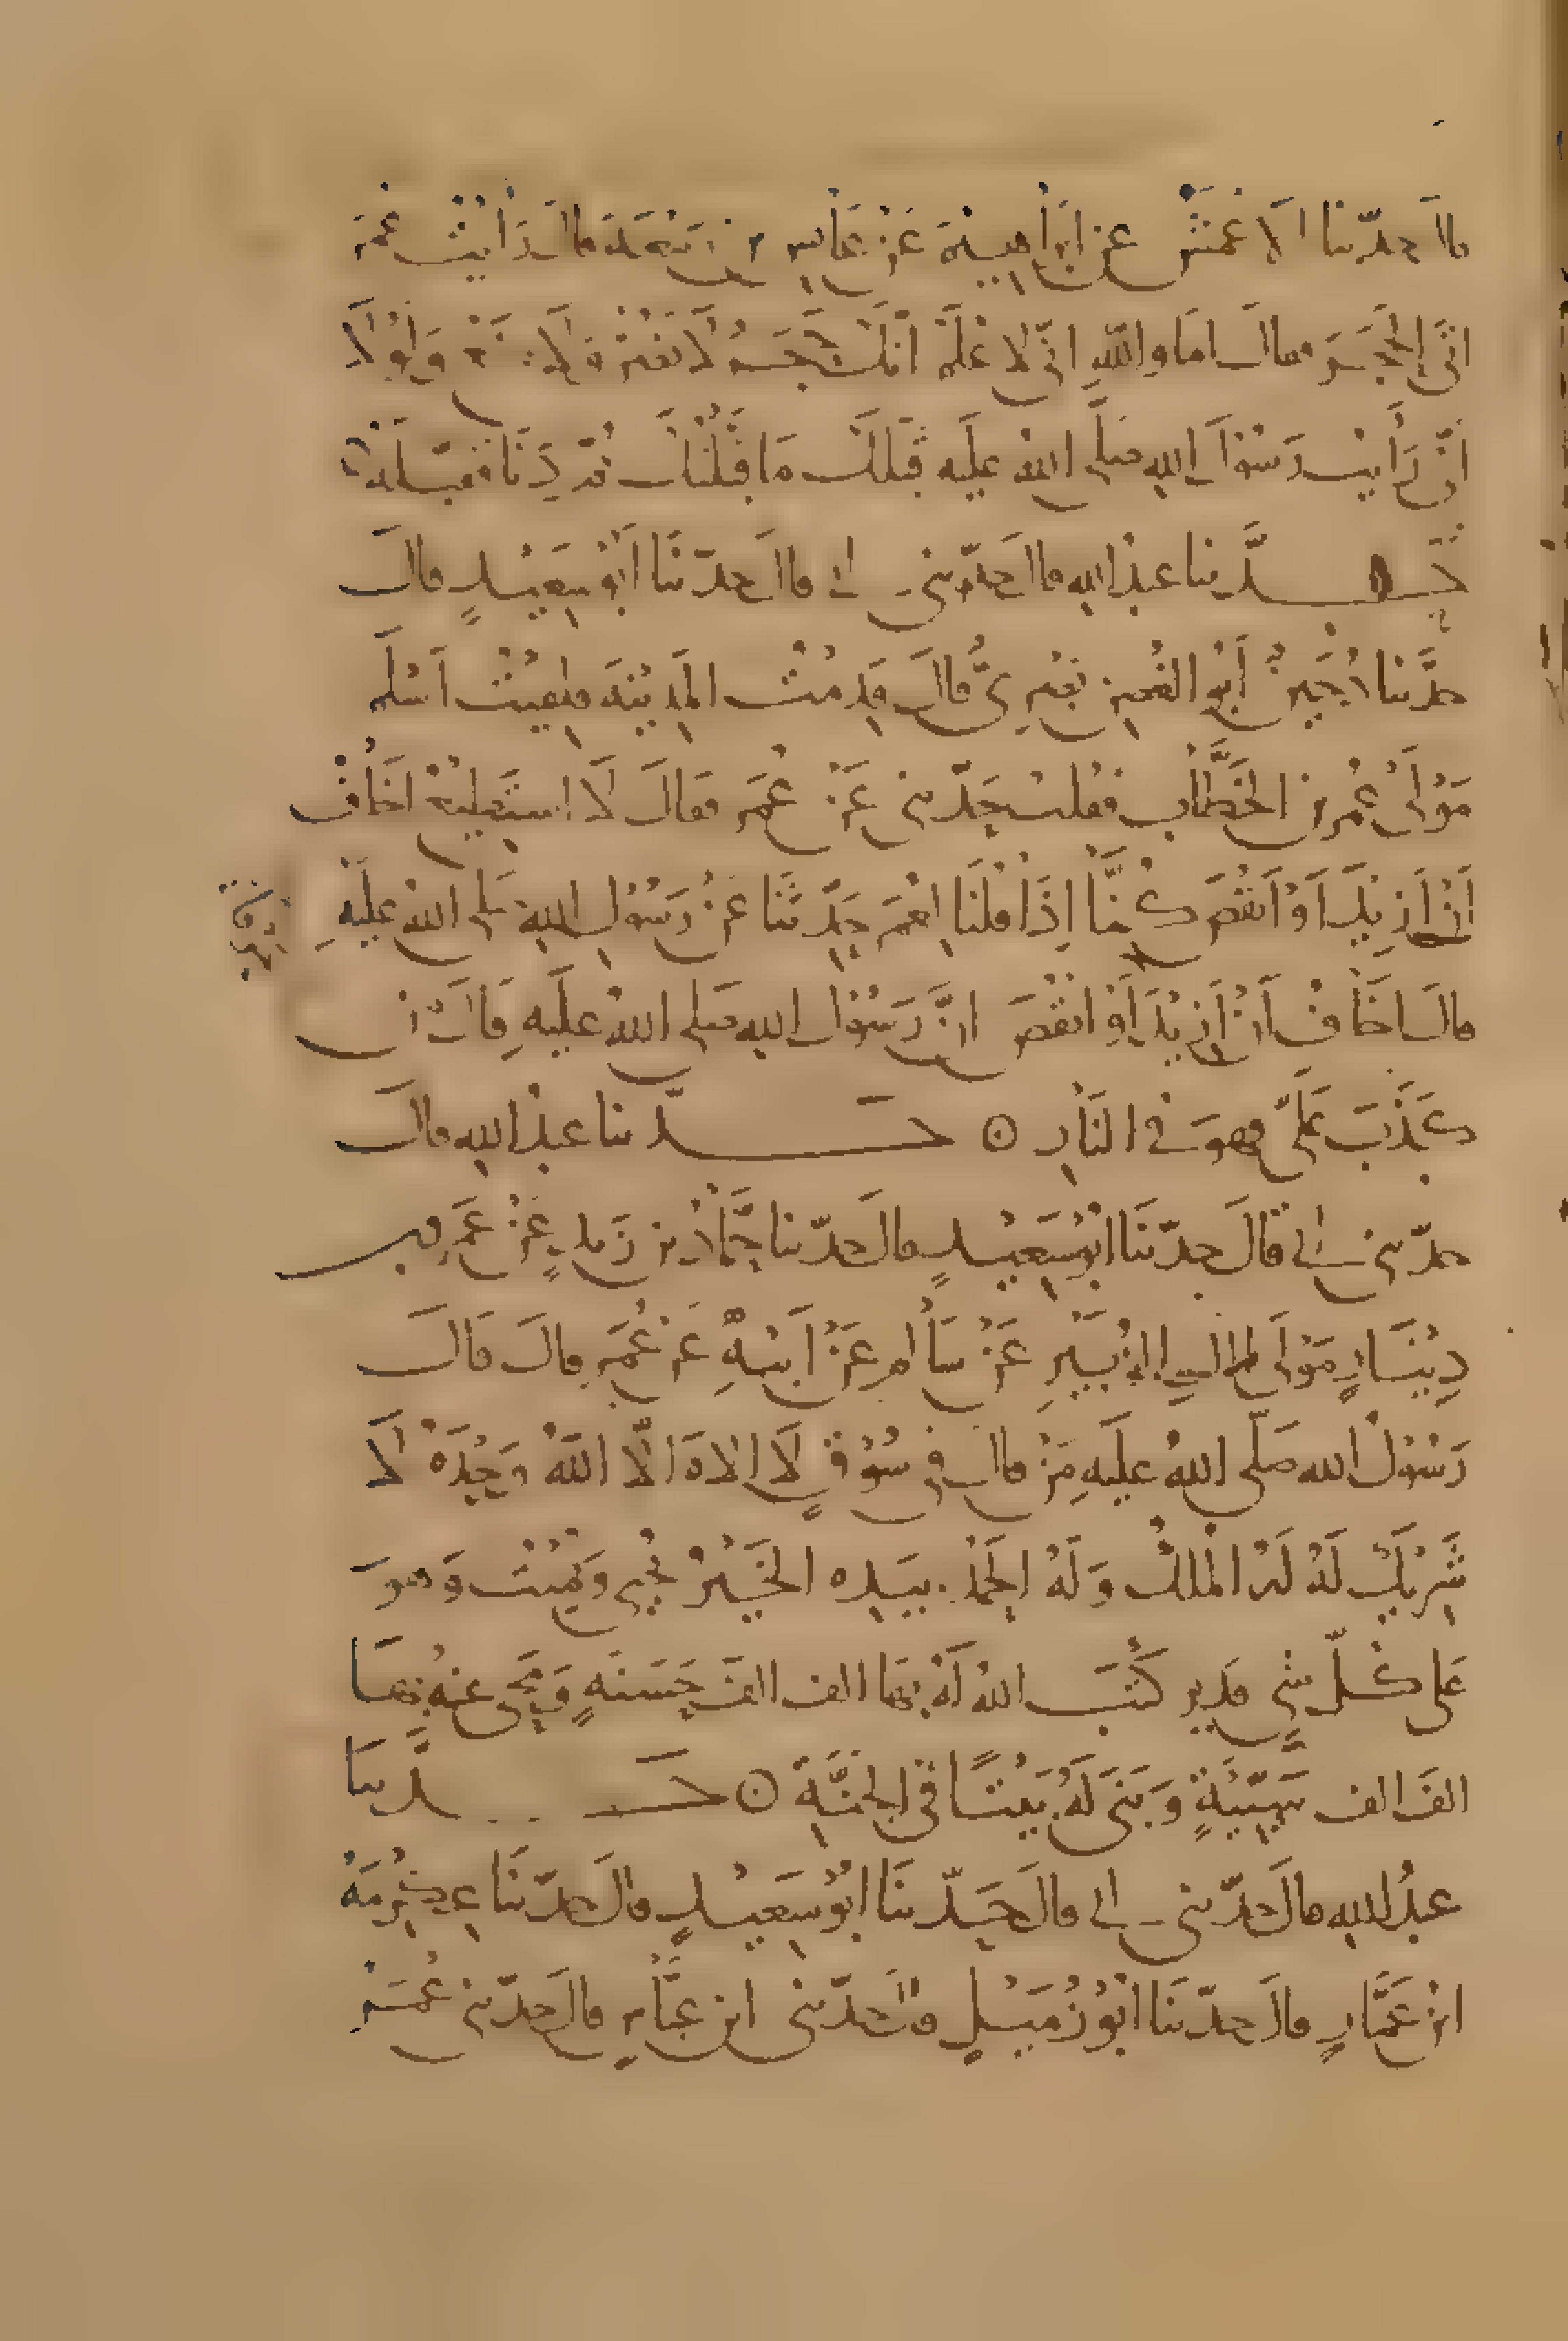 قال حدثنا الاعمش عن ابراهيم عن عابس بن ربيعة قال رايت عمر
اتى الحجر فقال اما والله اني لاعلم انك حجر لا تضر ولا تنفع ولولا
اني رايت رسول الله صلى الله عليه قبلك ما قبلتك ثم دنا فقبله
حدثنا عبد الله قال حدثني ابي قال حدثنا ابو سعيد قال
حدثنا دجين ابو الغصن بصري قال قدمت المدينة فلقيت اسلم
مولى عمر بن الخطاب فقلت حدثني عن عمر فقال لا استطيع اخاف
ان ازيد او انقص كنا اذا قلنا لعمر حدثنا عن رسول الله صلى الله عليه
قال اخاف ان ازيد او انقص ان رسول الله صلى الله عليه قال من
كذب علي فهو في النار ۝ حدثنا عبد الله قال
حدثني ابي قال حدثنا ابو سعيد قال حدثنا حماد بن زيد عن عمرو بن
دينار مولى ال الزبير عن سالم عن ابيه عن عمر قال قال
رسول الله صلى الله عليه من قال في سوق لا الاه الا الله وحده لا
شريك له له الملك وله الحمد بيده الخير يحيي ويميت وهو
على كل شي قدير كتب الله له بها الف الف حسنة ومحى عنه بها
الف الف سيئة وبنى له بيتا في الجنة ۝ حدثنا
عبد الله قال حدثني ابي قال حدثنا ابو سعيد قال حدثنا عكرمة
ابن عمار قال حدثنا ابو زميل قال حدثني ابن عباس قال حدثني عمر